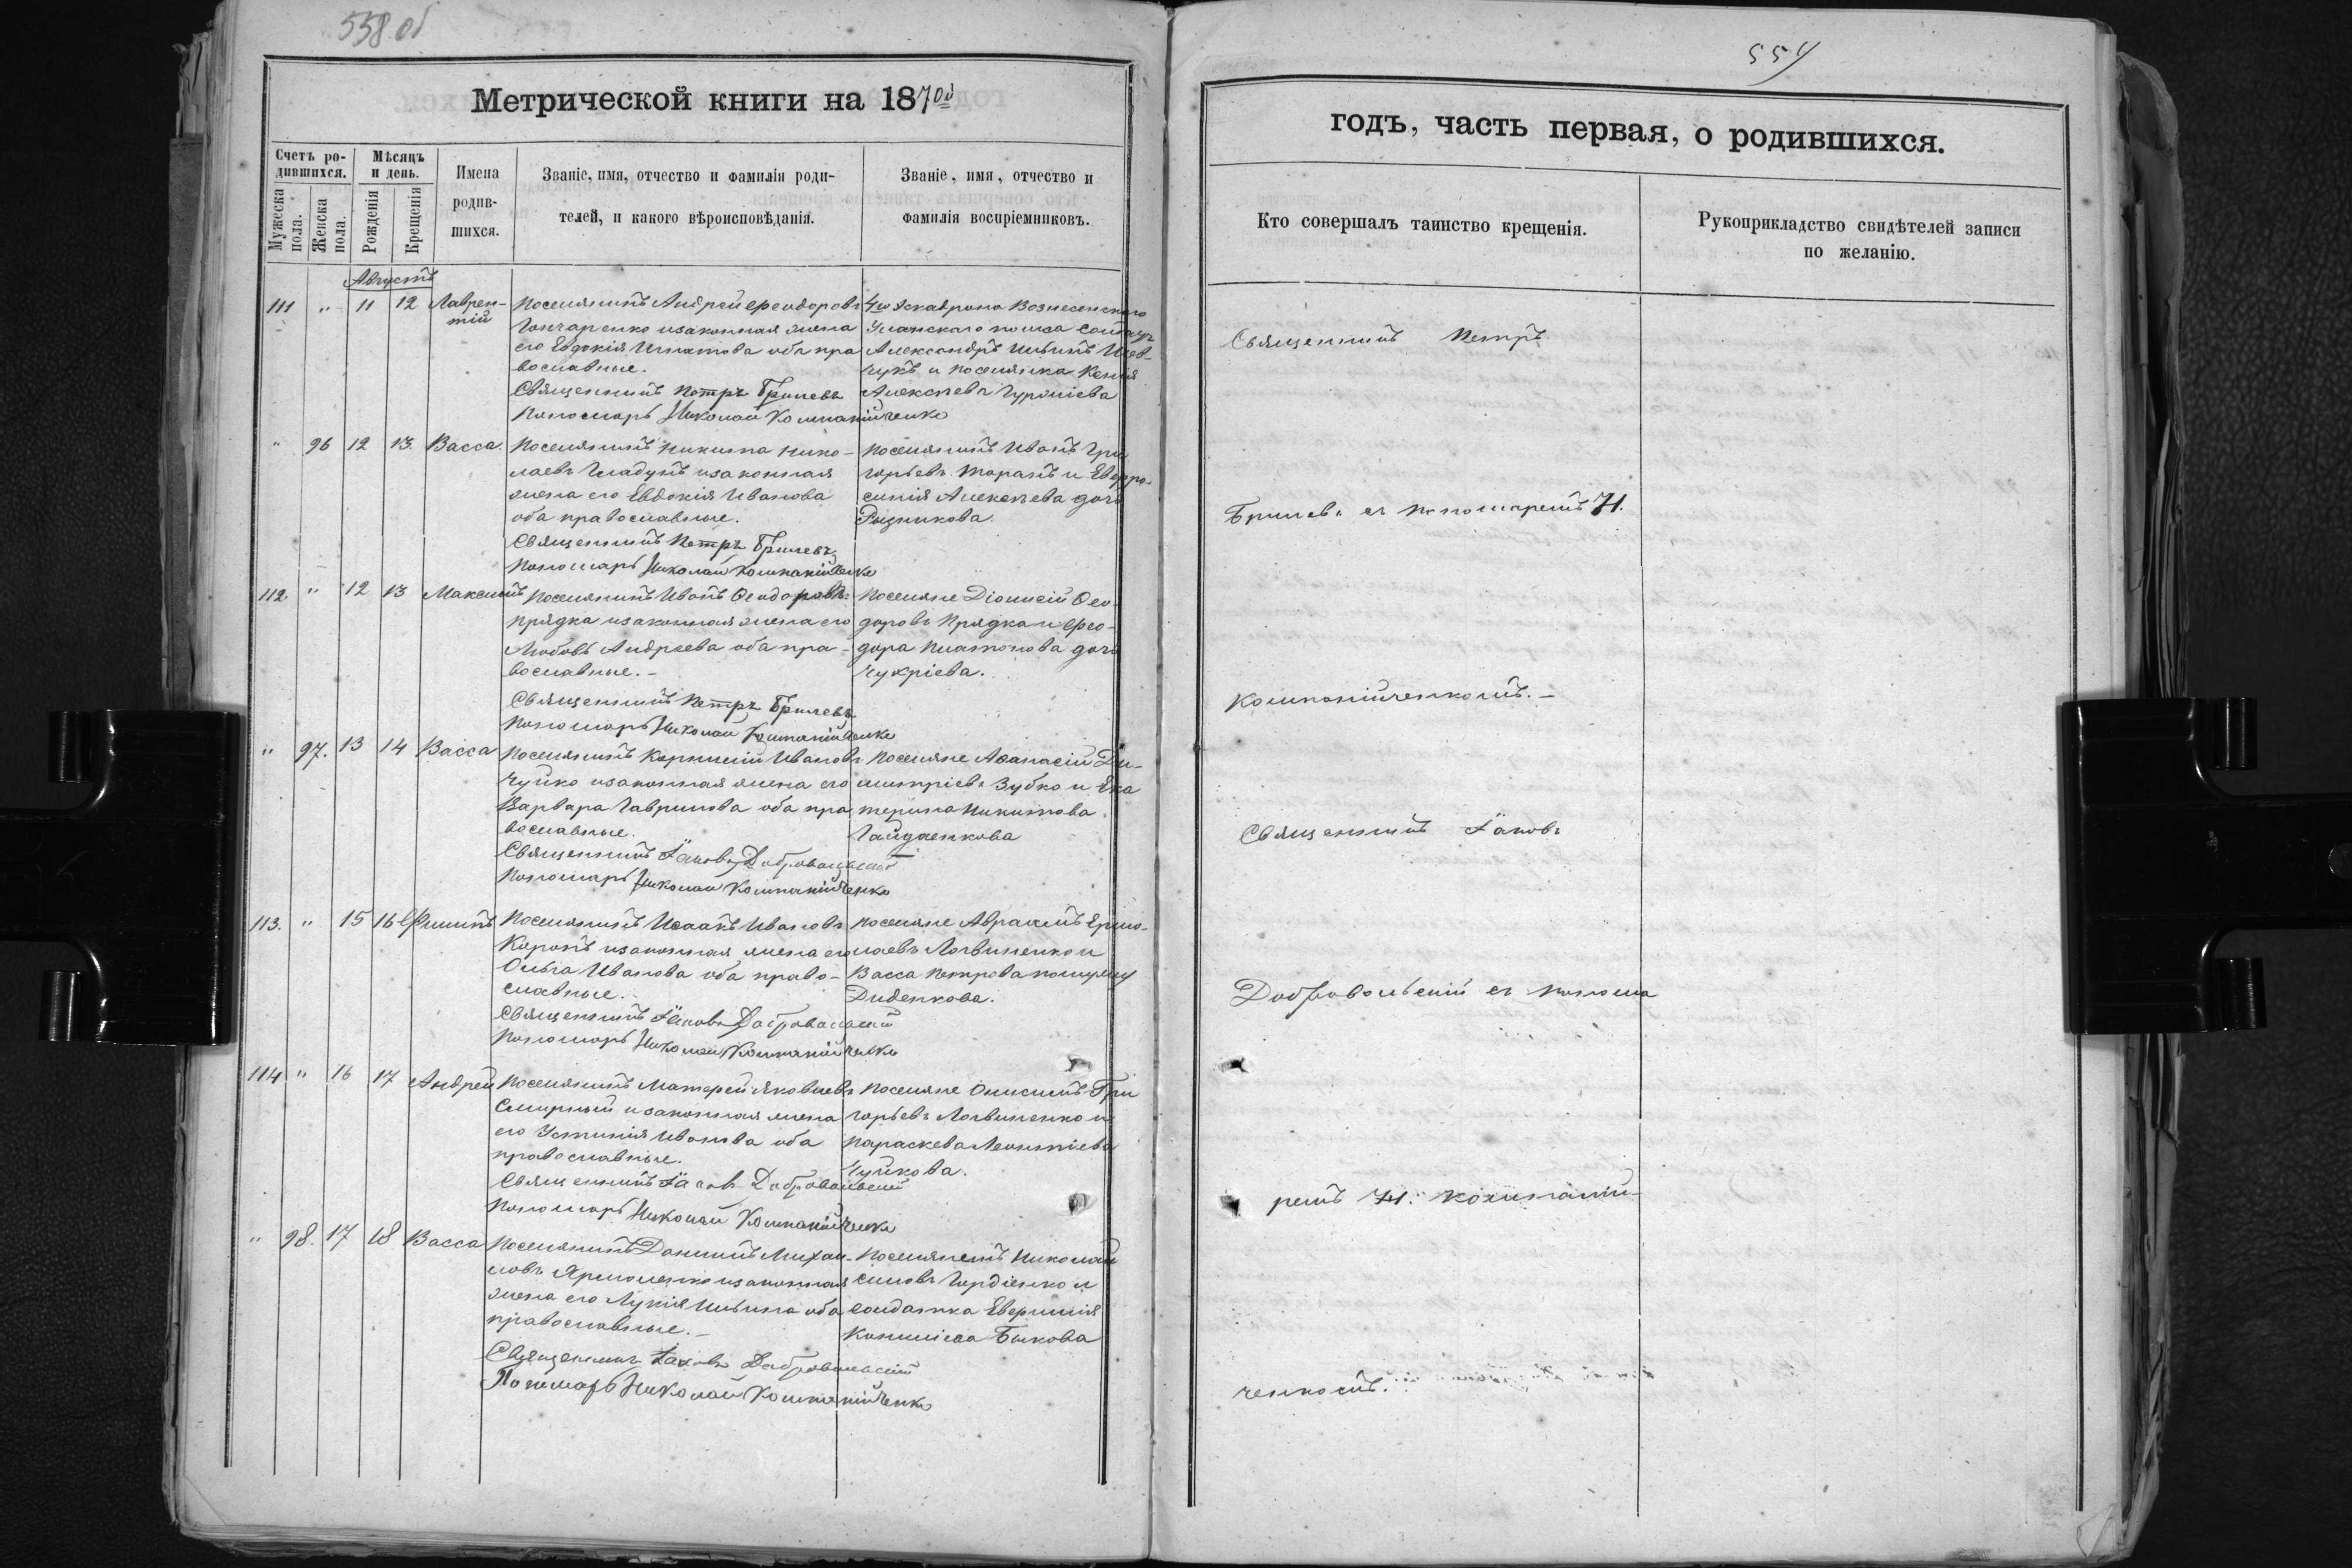 558 об
Метрической книги на 1870й
Счетъ ро-
дившихся.
Мѣсяцъ
и день.
Мужеска
пола.
Женска
пола.
Рожденія
Крещенія
Имена
родив-
шихся.
Званіе, имя, отчество и фамилія роди-
телей, и какого вѣроисповѣданія.
Званіе, имя, отчество и
фамилія воспріемниковъ.
Августъ
111 " 11 12 Лаврен-
тій
Поселянинъ Андрей Феодоровъ
Гончаренко и законная жена
его Евдокія Игнатова оба пра
вославные.
Священникъ Петръ Брилевъ
Пономарь Николай Компанійченко
4го Эскадрона Вознесенскаго
Уланскаго полка
Александръ Ильинъ Шев-
чукъ и поселянка
Алексѣева
" 96 12 13. Васса.
Поселянинъ Никита Нико-
лаевъ Гладунъ и законная
жена его Евдокія Иванова
оба православные.
Священникъ Петръ Брилевъ
Пономарь Николай Компанійченко
Поселянинъ Иванъ Гри
горьевъ Таранъ и Евфро-
синія Алексѣева дочь
Рызникова.
112 " 12 13 Максимъ
Поселянинъ Иванъ Ѳеодоровъ
Прядка и законная жена его
Любовь Андреева оба пра-
вославные. -
Священникъ Петръ Брилевъ
Пономарь Николай Компанійченко
Поселяне Діонисій Ѳео-
доровъ Прядка и Фео-
дора Платонова дочь
Чухріева.
" 97. 13 14 Васса
Поселянинъ Корнилій Ивановъ
Чуйко и законная жена его
Варвара Гаврилова оба пра
вославные.
Священникъ Іаковъ Добровольскій
Пономарь Николай Компанійченко
Поселяне Аѳанасій Ди-
митріевъ Зубко и Ека
терина Никитова
Гайдаенкова
113. " 15 16 Филипъ
Поселянинъ Исаакъ Ивановъ
законная жена его
Ольга Иванова оба право-
славные.
Священникъ Іаковъ Добровольскій
Пономарь Николай Компанійченко
Поселяне Авраамъ Ермо-
лаевъ Логвиненко и
Васса Петрова
Диденкова.
114 " 16 17 Андрей
Поселянинъ Матфей Яковлевъ
Смирный и законная жена
его Устинія Иванова оба
православные.
Священникъ Іаковъ Добровольскій
Пономарь Николай Компанійченко
Поселяне Онисимъ Гри
горьевъ Логвиненко и
Параскева Леонтіева
Чуйкова.
" 98. 17 18 Васса
Поселянинъ Даниилъ Михаи-
ловъ Ярмоленко и законная
жена его Лукія Ильина оба
православные. -
Священникъ Іаковъ Добровольскій
Пономарь Николай Компанійченко
Николай
Гордіенко и
солдатка
Быкова
554
годъ, часть первая, о родившихся.
Кто совершалъ таинство крещенія.
Рукоприкладство свидѣтелей записи
по желанію.
Священникъ Петръ
Брилевъ съ пономаремъ Н.
Компанійченкомъ. -
Священникъ Іаковъ
Добровольскій съ понома
ремъ Н. Компаній-
ченкомъ.